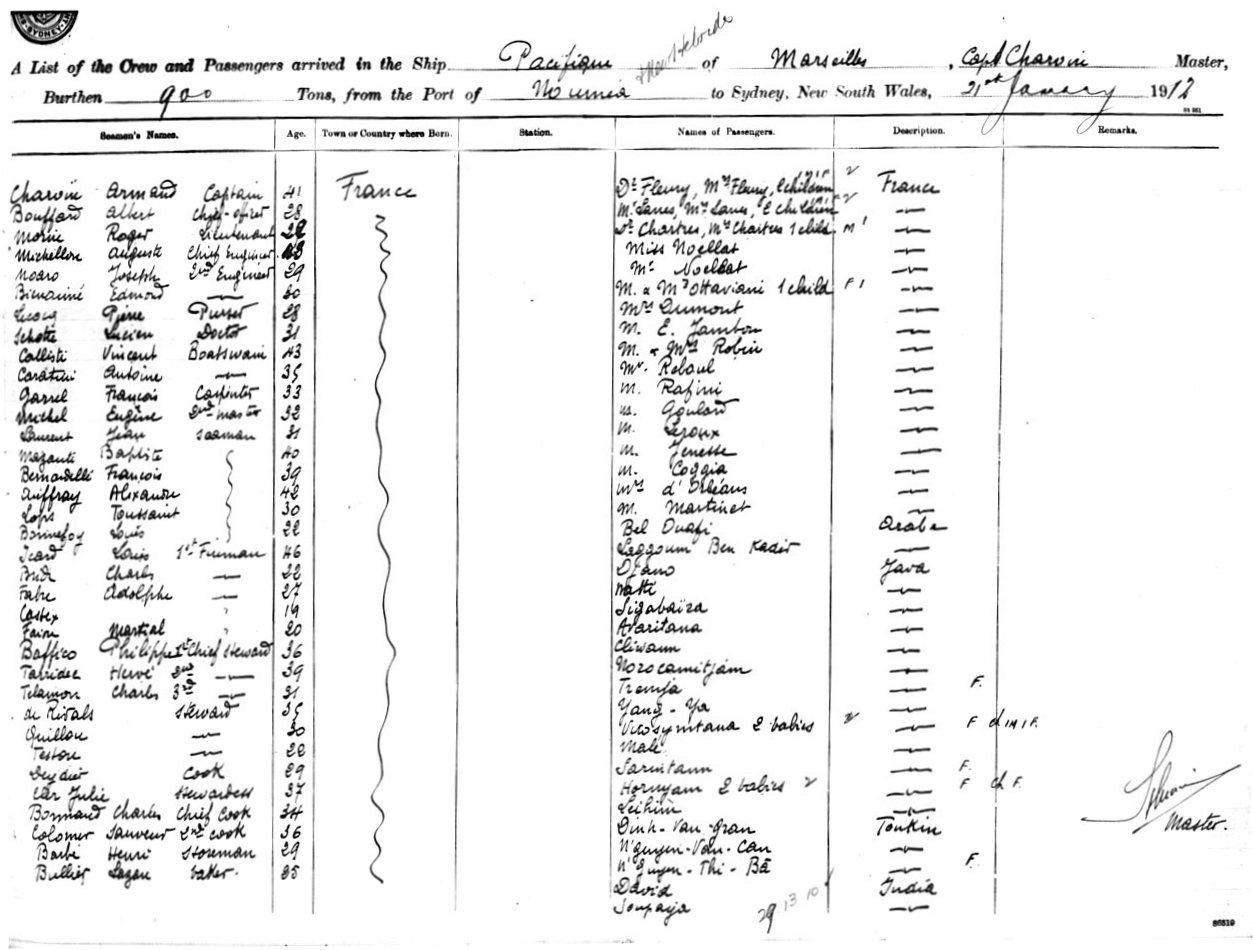 SYDNEY
A List of the Crew and Passengers arrived in the Ship Pacifique of Marseilles, Capt Charvin Master,
Burthen 900 Tons, from the Port of Noumea to Sydney, New South Wales, 21st January 1912
Seamen's Names. Age. Town or Country where Born. Station. Names of Passengers. Description. Remarks.
Charvin Armand Captain 41 France Dr Fleury, Mrs Fleury, 2 children France
Bouffard Albert Chief-officer 28 Mr Lanes, Mrs Lanes, 2 children —
Morin Roger Lieutenant Dr Chartres, Mrs Chartres 1 child M 1 —
Michellon Auguste Chief Engineer Miss Noellat —
Noaro Joseph 2nd Engineer 29 Mr Noellat —
Bienaimé Edmond — 30 M. & Mrs Ottaviani 1 child F 1 —
Lecocq Pierre Purser 28 Mrs Dumont —
Schotte Lucien Doctor 31 M. E. Jambon —
Callisti Vincent Boatswain 43 M. & Mrs Robin —
Antoine — 35 Mr. Reboul —
Garrel François Carpenter 33 M. Rafini —
Michel Eugène 2nd master 32 M. Goulard —
Laurent Jean seaman 31 M. Leroux —
Baptiste 40 M. Jenesse —
Bernardelli François 39 M. Coggia —
Auffray Alexandre 42 Mrs d'Orléans —
Lops Toussaint 30 M. Martinet —
Bonnefoy Louis 22 Bel Ouafi Arabe
Icard Louis 1st Fireman 46 Laggoum Ben Kadir —
Charles — 22 Djano Java
Fabre Adolphe — 27 Natti —
Castex " 19 Sigabaïza —
Martial " 20 Araritana —
Baffico Philippe 1st Chief Steward 36 Cliwann —
Tarridec Hervé 2nd — 39 Norocamitjam —
Telamon Charles 3rd — 31 Tremja — F.
de Rivals Steward 35 Yang-Ya —
Quillon — 30 2 babies 2 — F
Teston — 28 Malé —
Deydier Cook 29 Sarintann — F.
Julie Stewardess 37 Hornyam 2 babies 2 — F ch F.
Bonnaud Charles Chief Cook 34 Leihim —
Colomer Sauveur 2nd cook 36 Dinh-Van-Gran Tonkin
Barbé Henri Storeman 29 N'guyen-Van-Can —
Bullier Lazare baker. 25 N'guyen-Thi-Bâ — F.
David India
Soupaya —
29 13 10
Master.
86519